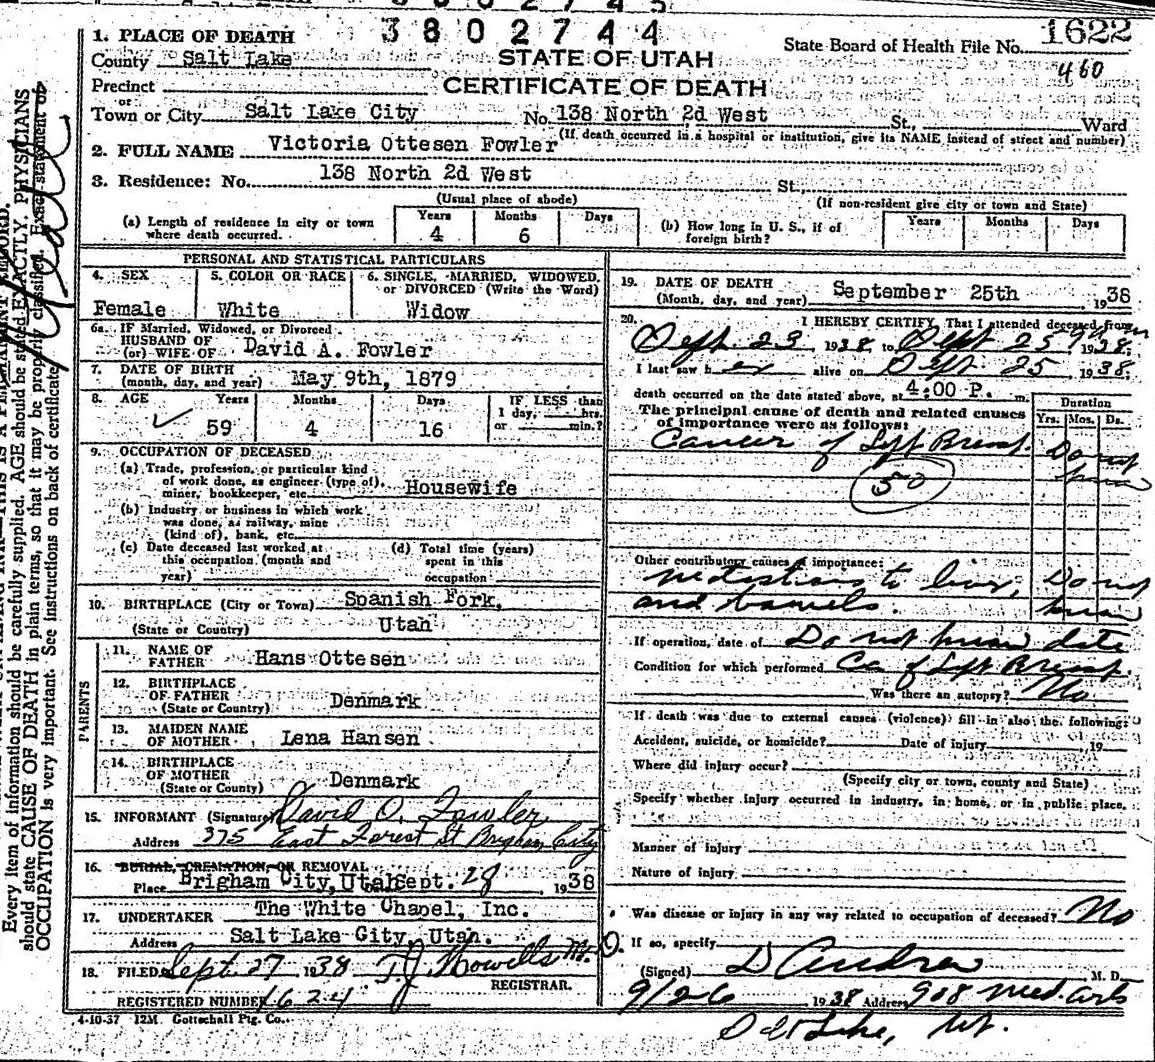 3802744
1. PLACE OF DEATH
STATE OF UTAH
State Board of Health File No. 1622
County Salt Lake
460
CERTIFICATE OF DEATH
Precinct
or
Town or City Salt Lake City No. 138 North 2d West St., Ward
(If death occurred in a hospital or institution, give its NAME instead of street and number)
2. FULL NAME Victoria Ottesen Fowler
3. Residence: No. 138 North 2d West St.
(Usual place of abode)
(If non-resident give city or town and State)
(a) Length of residence in city or town where death occurred. Years 4 Months 6 Days
(b) How long in U. S., if of foreign birth? Years Months Days
PERSONAL AND STATISTICAL PARTICULARS
4. SEX Female
5. COLOR OR RACE White
6. SINGLE, MARRIED, WIDOWED, or DIVORCED (Write the Word) Widow
6a. IF Married, Widowed, or Divorced
HUSBAND OF
(or) WIFE OF David A. Fowler
7. DATE OF BIRTH
(month, day, and year) May 9th, 1879
8. AGE Years 59 Months 4 Days 16
IF LESS than
1 day, hrs.
or min.?
9. OCCUPATION OF DECEASED
(a) Trade, profession, or particular kind
of work done, as engineer (type of),
miner, bookkeeper, etc. Housewife
(b) Industry or business in which work
was done, as railway, mine
(kind of), bank, etc.
(c) Date deceased last worked at
this occupation (month and
year)
(d) Total time (years)
spent in this
occupation
10. BIRTHPLACE (City or Town) Spanish Fork,
(State or Country) Utah
PARENTS
11. NAME OF
FATHER Hans Ottesen
12. BIRTHPLACE
OF FATHER
(State or Country) Denmark
13. MAIDEN NAME
OF MOTHER Lena Hansen
14. BIRTHPLACE
OF MOTHER
(State or Country) Denmark
15. INFORMANT (Signature) David O. Fowler
Address 375 East Forest St Brigham City
16. BURIAL, CREMATION, OR REMOVAL
Place Brigham City, Utah Sept. 28, 1938
17. UNDERTAKER The White Chapel, Inc.
Address Salt Lake City, Utah.
18. FILED Sept 27 1938 T.J. Howells M.D.
REGISTRAR.
REGISTERED NUMBER 1624
4-10-37 12M Gottschall Ptg. Co.
19. DATE OF DEATH
(Month, day, and year) September 25th, 1938
20. I HEREBY CERTIFY, That I attended deceased from
Sept. 23, 1938, to Sept 25, 1938;
I last saw her alive on Sept. 25, 1938;
death occurred on the date stated above, at 4:00 P. m.
The principal cause of death and related causes
of importance were as follows:
Duration
Yrs. Mos. Ds.
Cancer of Left Breast. Do not know
50
Other contributory causes of importance:
to liver, Do not
and bowels. know
If operation, date of Do not know date
Condition for which performed Ca of Left Breast.
Was there an autopsy? No
If death was due to external causes (violence) fill in also the following:
Accident, suicide, or homicide? Date of injury , 19
Where did injury occur?
(Specify city or town, county and State)
Specify whether injury occurred in industry, in home, or in public place.
Manner of injury
Nature of injury
Was disease or injury in any way related to occupation of deceased? No
If so, specify
(Signed) M. D.
9/26 1938 Address 908 Med. Arts
Salt Lake, Ut.
Every item of information should be carefully supplied. AGE should be stated EXACTLY. PHYSICIANS
should state CAUSE OF DEATH in plain terms, so that it may be properly classified. Exact statement of
OCCUPATION is very important. See instructions on back of certificate.